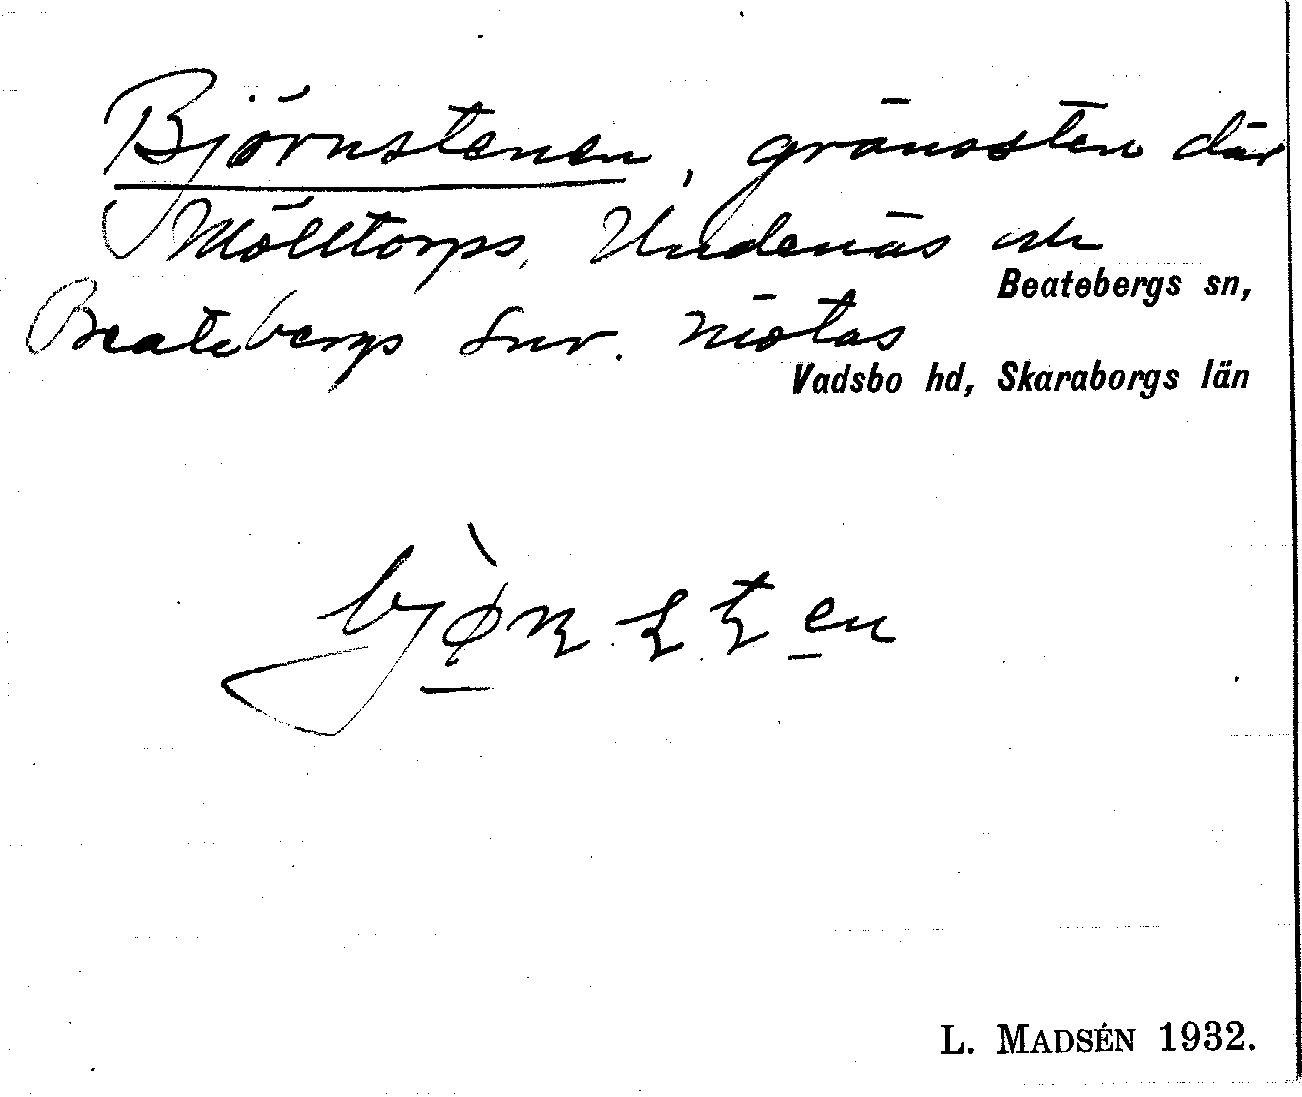 Björnstenen, gränssten där
Mölltorps, Undenäs och
Beatebergs sn,
Beatebergs snr. mötas
Vadsbo hd, Skaraborgs län
L. MADSÉN 1932.